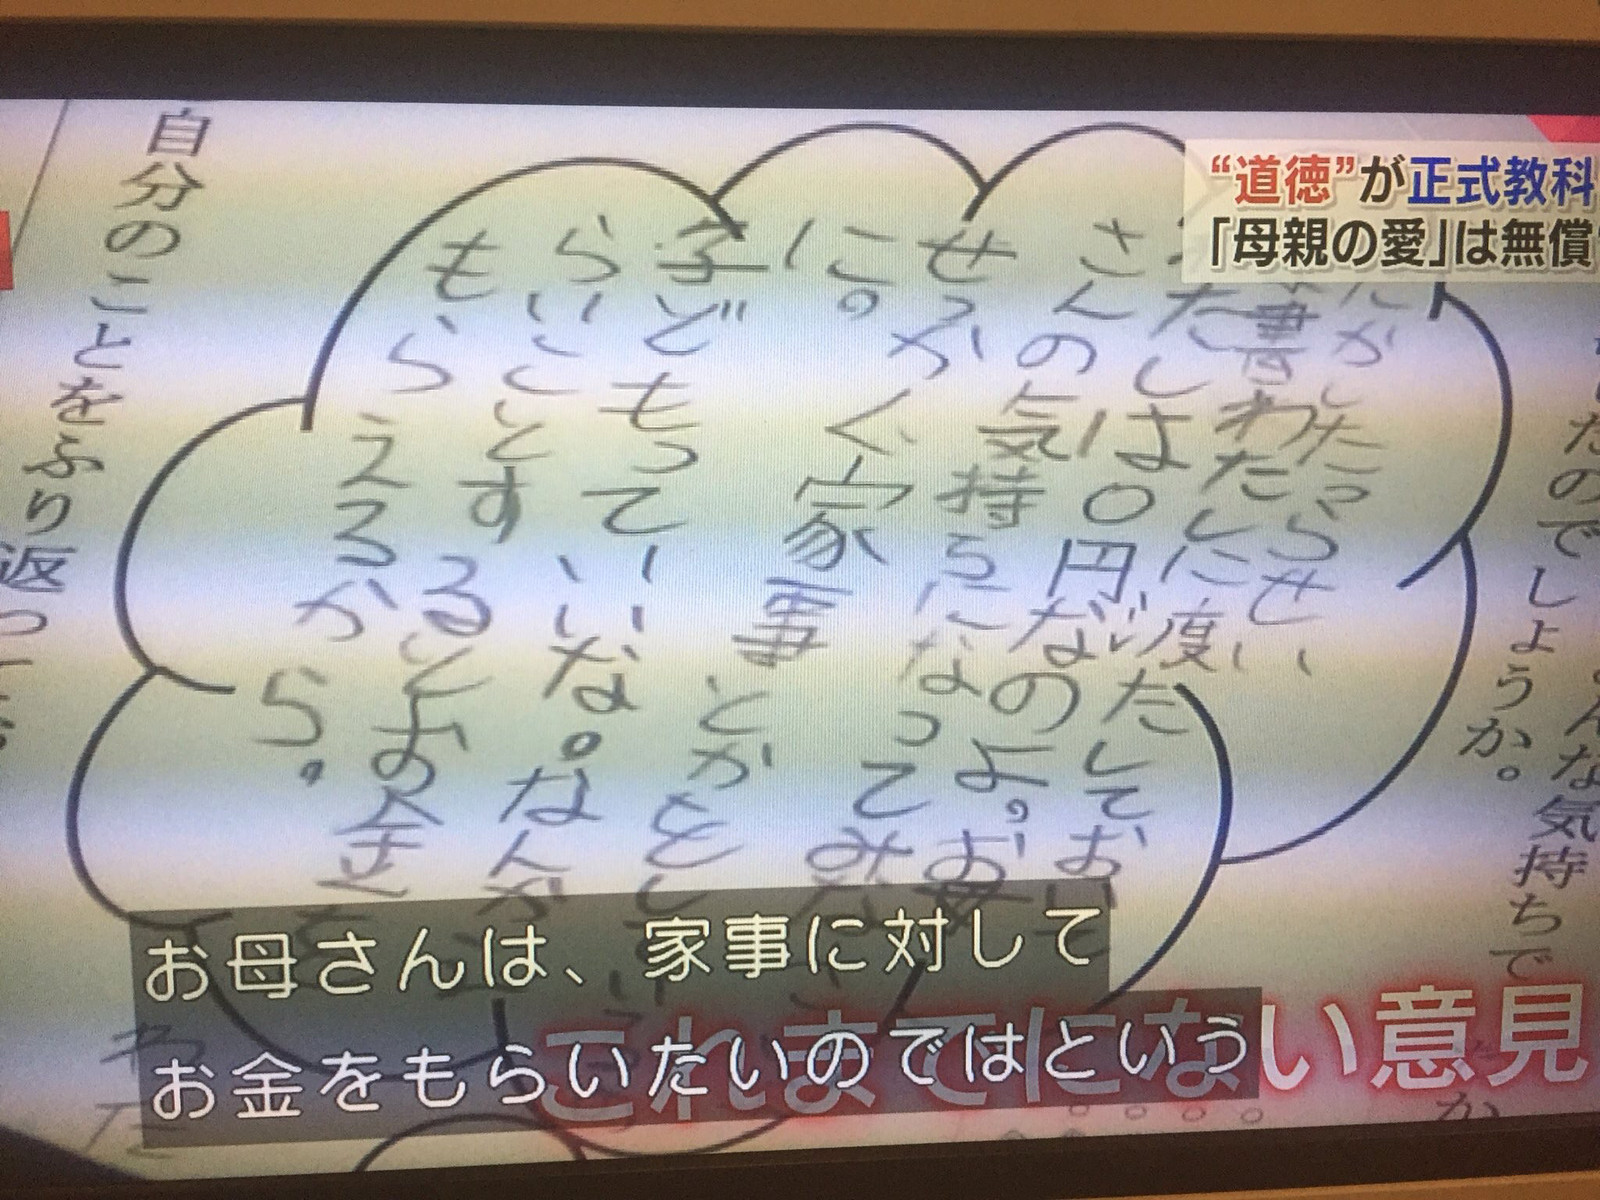 “道徳”が正式教科
「母親の愛」は無償
んな気持ちで
いたのでしょうか。
書わたし
は0円なのよ。お母
さんの気持ちになってみ
せっかく家事とかをし
に。
子どもっていいな。なんか
らいことするとお金を
もらえるから。
自分のことをふり返っ
お母さんは、家事に対して
お金をもらいたいのではという
これまでにない意見